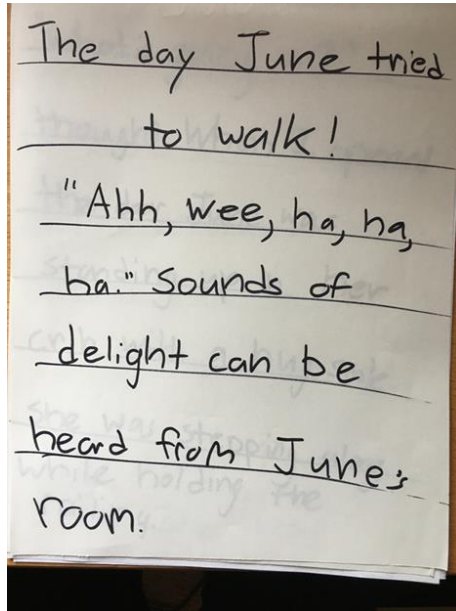 The day June tried
to walk!
"Ahh, wee, ha, ha,
ha." Sounds of
delight can be
heard from June's
room.